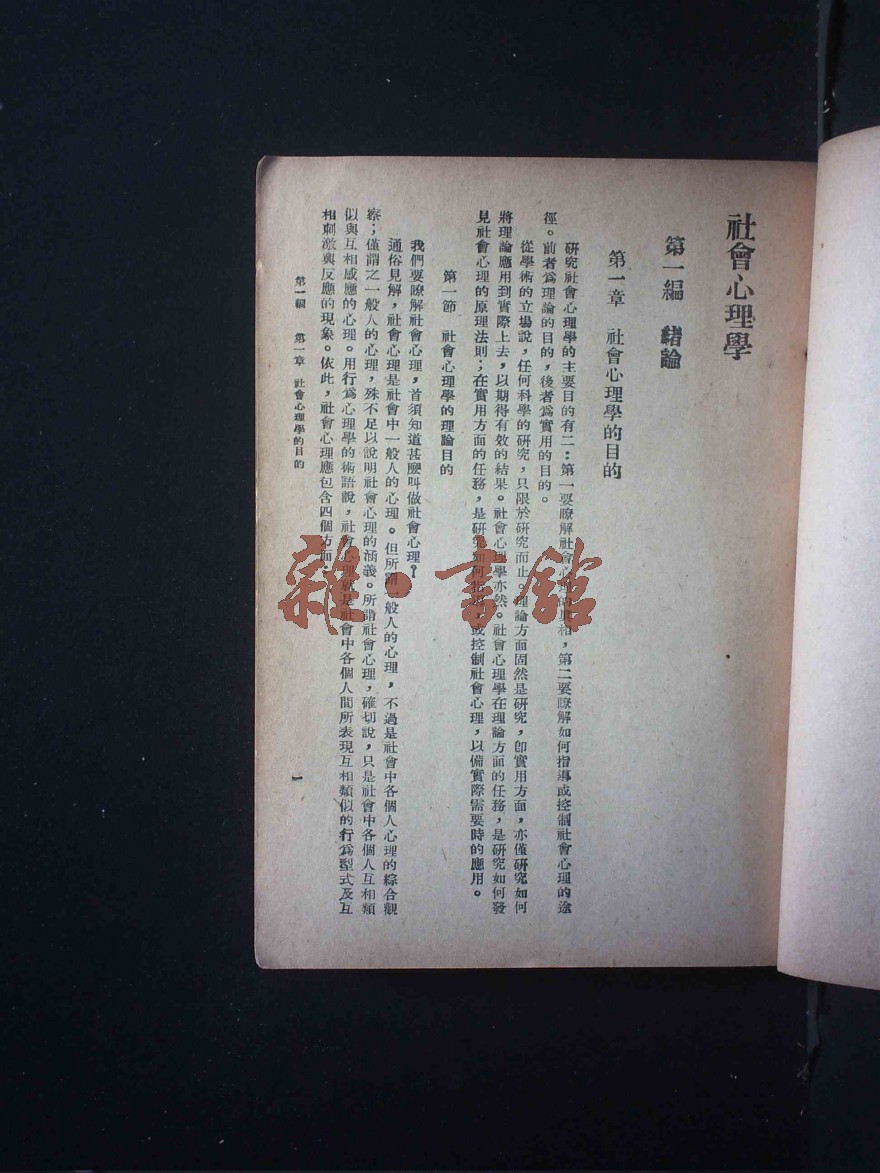 社會心理學
第一編　緒論
第一章　社會心理學的目的
研究社會心理學的主要目的有二：第一要瞭解社會心理的真相，第二要瞭解如何指導或控制社會心理的途
徑。前者爲理論的目的，後者爲實用的目的。
從學術的立場說，任何科學的研究，只限於研究而止。理論方面固然是研究，卽實用方面，亦僅研究如何
將理論應用到實際上去，以期得有效的結果。社會心理學亦然。社會心理學在理論方面的任務，是研究如何發
見社會心理的原理法則；在實用方面的任務，是研究如何指導，或控制社會心理，以備實際需要時的應用。
第一節　社會心理學的理論目的
我們要瞭解社會心理，首須知道甚麼叫做社會心理？
通俗見解，社會心理是社會中一般人的心理。但所謂一般人的心理，不過是社會中各個人心理的綜合觀
察；僅謂之一般人的心理，殊不足以說明社會心理的涵義。所謂社會心理，確切說，只是社會中各個人互相類
似與互相感應的心理。用行爲心理學的術語說，社會心理就是社會中各個人間所表現互相類似的行爲型式及互
相刺激與反應的現象。依此，社會心理應包含四個方面：
第一編　第一章　社會心理學的目的
一
雜·書館